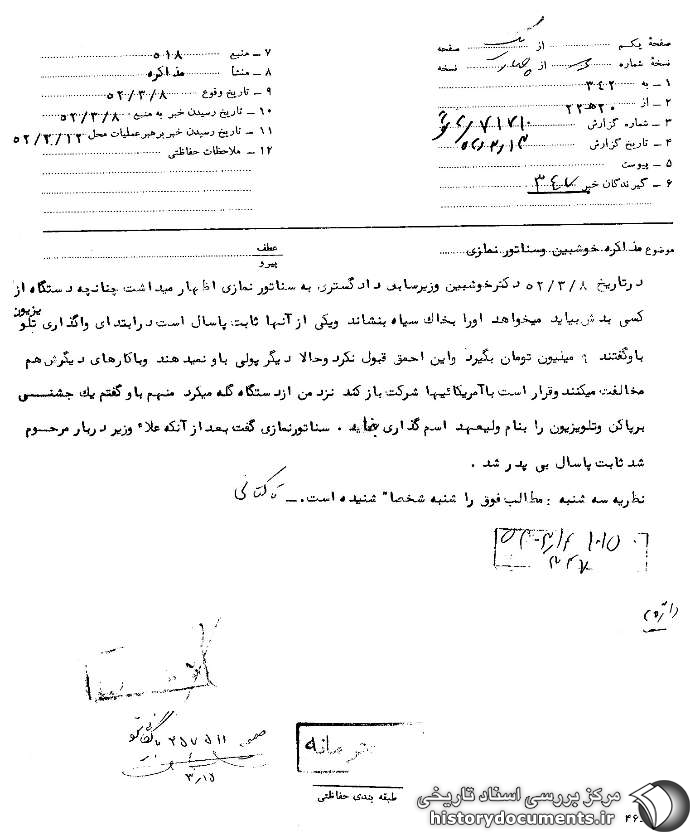 صفحهٔ یکم ........ از ... یک ... صفحه
نسخهٔ شماره ........ از چهار نسخه
۱ ـ به ........ ۳۴۲
۲ ـ از ........ ۲۰ ه‍ ۲۲
۳ ـ شماره گزارش ........ ۷۱۷۱۰
۴ ـ تاریخ گزارش ........
۵ ـ پیوست ........
۶ ـ گیرندگان خبر ........ ۳۴۷
۷ ـ منبع ........ ۵۱۸
۸ ـ منشأ ........ مذاکره
۹ ـ تاریخ وقوع ........ ۵۲/۳/۸
۱۰ ـ تاریخ رسیدن خبر به منبع ۵۲/۳/۸
۱۱ ـ تاریخ رسیدن خبر برهبر عملیات محل ۵۲/۳/۱۲
۱۲ ـ ملاحظات حفاظتی
موضوع مذاکره خوشبین وسناتور نمازی
عطف
پیرو
درتاریخ ۵۲/۳/۸ دکترخوشبین وزیرسابق دادگستری به سناتور نمازی اظهار میداشت چنانچه دستگاه از
کسی بدش بیاید میخواهد اورا بخاک سیاه بنشاند ویکی از آنها ثابت پاسال است درابتدای واگذاری تلویزیون
باوگفتند ۹ میلیون تومان بگیرد واین احمق قبول نکرد وحالا دیگر پولی باو نمیدهند وباکارهای دیگرش هم
مخالفت میکنند وقرار است باآمریکائیها شرکت باز کند نزد من ازدستگاه گله میکرد منهم باو گفتم یک جشنسی
برپاکن وتلویزیون را بنام ولیعهد اسم گذاری بنماید . سناتورنمازی گفت بعد از آنکه علاء وزیر دربار مرحوم
شد ثابت پاسال بی پدر شد .
نظریه سه شنبه : مطالب فوق را شنبه شخصاً شنیده است . ـ
۳۴۷
۳/۱۵
محرمانه
طبقه بندی حفاظتی
مرکز بررسی اسناد تاریخی
historydocuments.ir